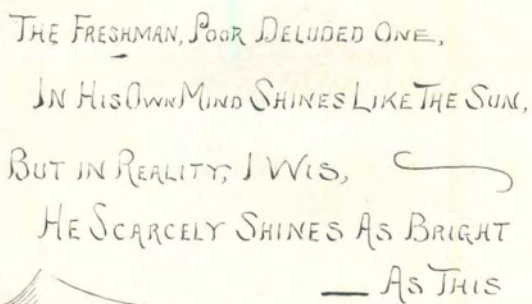 The Freshman, Poor Deluded One,
In His Own Mind Shines Like The Sun,
But in Reality, I Wis,
He Scarcely Shines As Bright
— As This